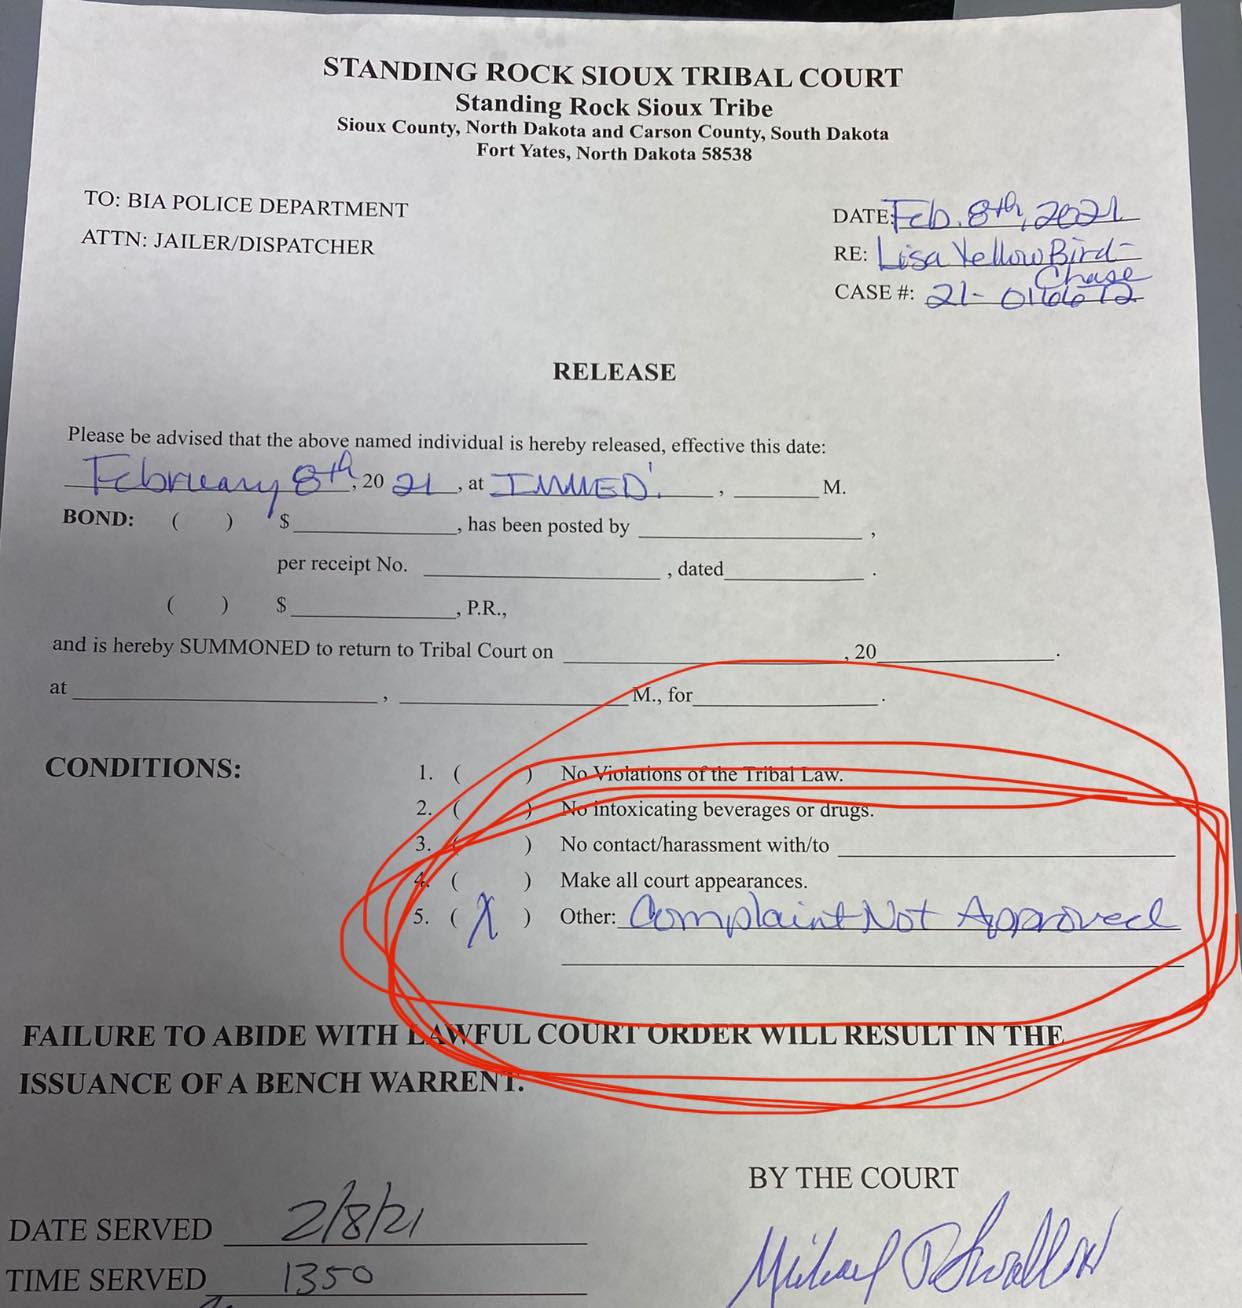 STANDING ROCK SIOUX TRIBAL COURT
Standing Rock Sioux Tribe
Sioux County, North Dakota and Carson County, South Dakota
Fort Yates, North Dakota 58538
TO: BIA POLICE DEPARTMENT
ATTN: JAILER/DISPATCHER
DATE: Feb. 8th, 2021
RE: Lisa YellowBird-
Chase
CASE #: 21-
RELEASE
Please be advised that the above named individual is hereby released, effective this date:
February 8th, 2021, at IMMED'., ______ M.
BOND: ( ) $ ______, has been posted by ______,
per receipt No. ______, dated ______.
( ) $ ______, P.R.,
and is hereby SUMMONED to return to Tribal Court on ______, 20______.
at ______, ______ M., for ______.
CONDITIONS: 1. ( ) No Violations of the Tribal Law.
2. ( ) No intoxicating beverages or drugs.
3. ( ) No contact/harassment with/to ______
4. ( ) Make all court appearances.
5. ( X ) Other: Complaint Not Approved
FAILURE TO ABIDE WITH LAWFUL COURT ORDER WILL RESULT IN THE
ISSUANCE OF A BENCH WARRENT.
BY THE COURT
DATE SERVED 2/8/21
TIME SERVED 1350
Michael